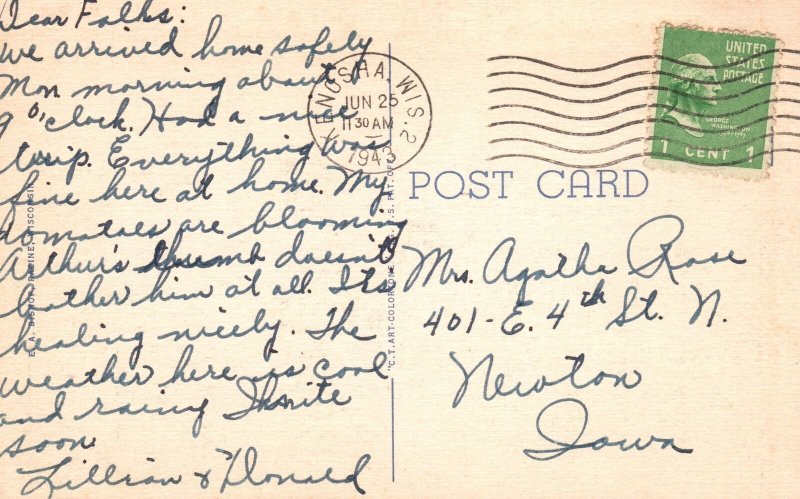 Dear Folks:
We arrived home safely
Mon morning about
9 o'clock. Had a nice
trip. Everything was
fine here at home. My
tomatoes are blooming
Arthur's thumb doesn't
bother him at all. Its
healing nicely. The
weather here is cool
and rainy
soon
Lillian & Donald
KENOSHA, WIS. 2
JUN 25
11 30 AM
1943
UNITED
STATES
POSTAGE
GEORGE
WASHINGTON
1 CENT 1
POST CARD
Mrs. Agatha Rose
401-E. 4th St. N.
Newton
Iowa
RACINE, WISCONSIN
"C.T. ART-COLORTONE"